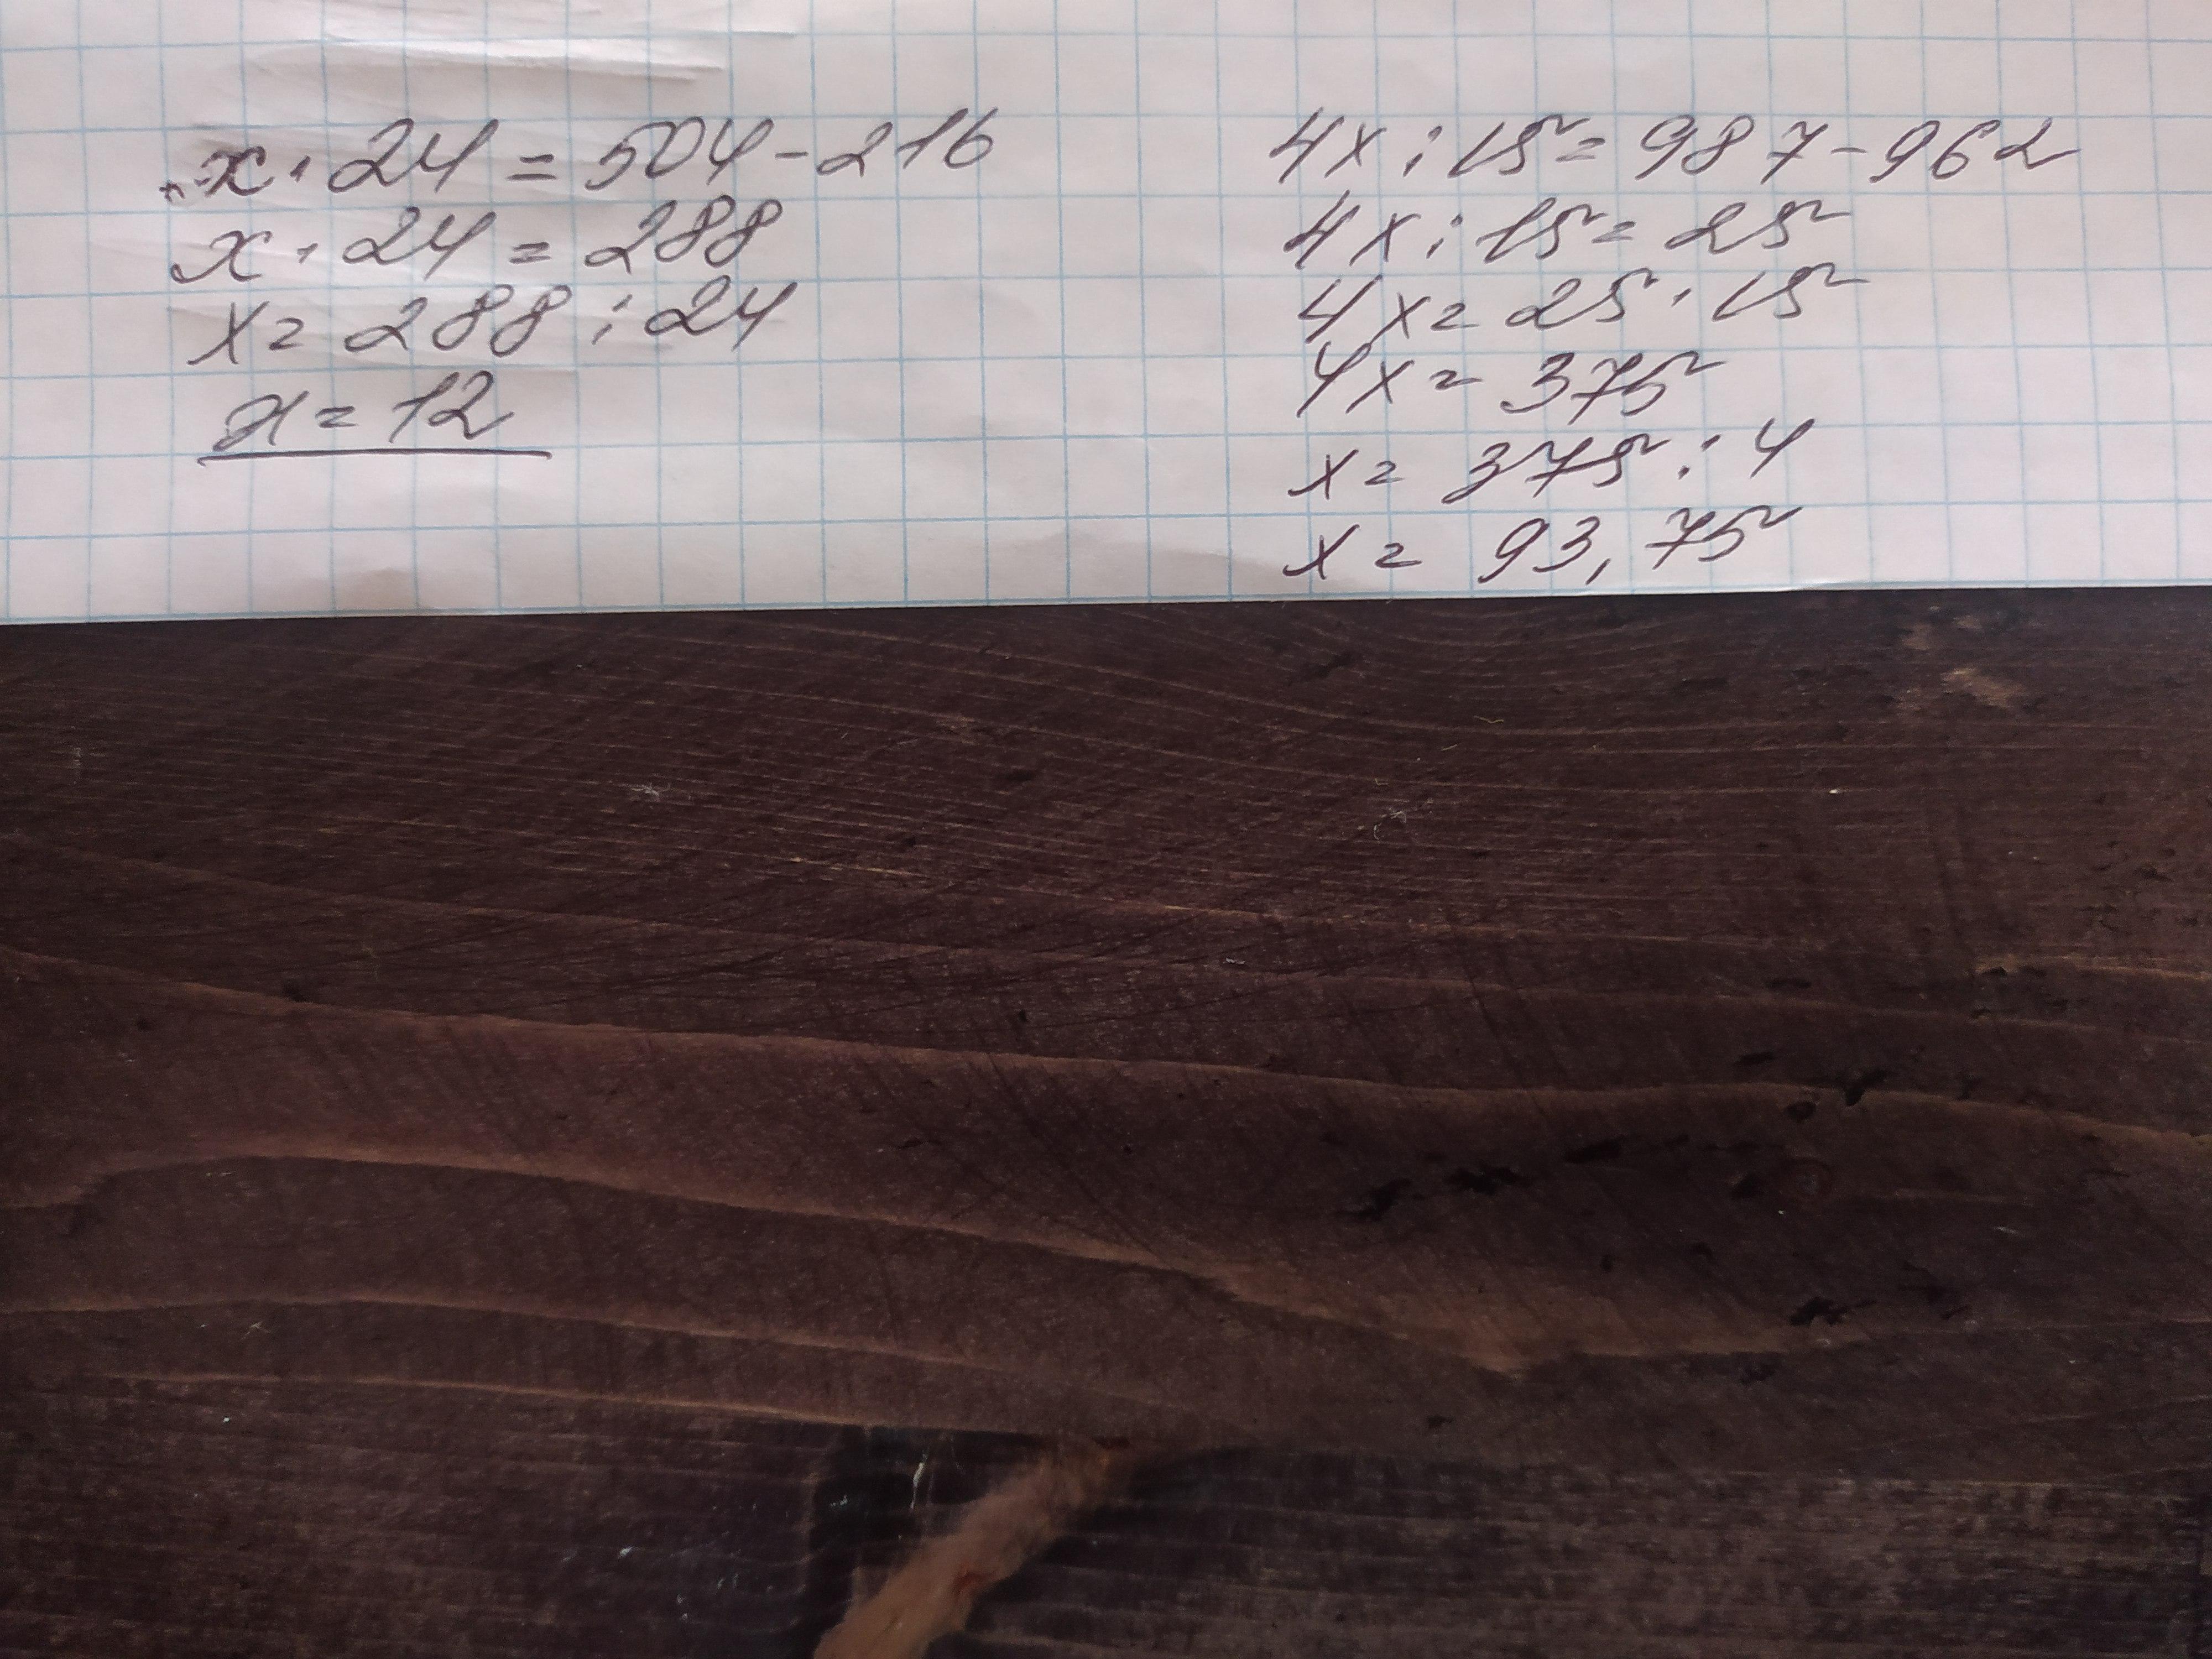 x · 24 = 504 - 216
x · 24 = 288
x = 288 : 24
x = 12
4x : 15 = 987 - 962
4x : 15 = 25
4x = 25 · 15
4x = 375
x = 375 : 4
x = 93,75